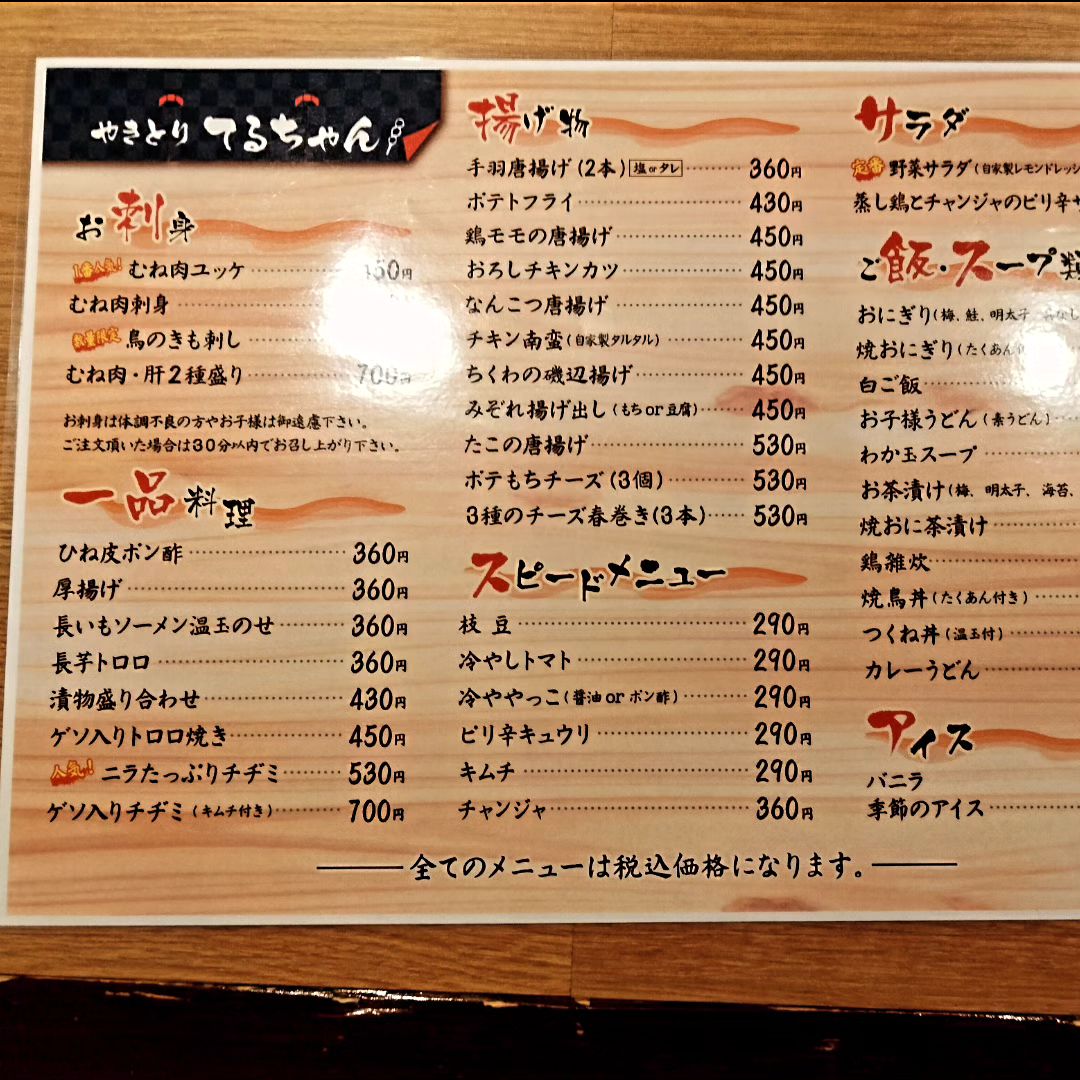 やきとり てるちゃん
お刺身
1番人気! むね肉ユッケ 50円
むね肉刺身
数量限定 鳥のきも刺し
むね肉・肝2種盛り 700円
お刺身は体調不良の方やお子様は御遠慮下さい。
ご注文頂いた場合は30分以内でお召し上がり下さい。
一品料理
ひね皮ポン酢 360円
厚揚げ 360円
長いもソーメン温玉のせ 360円
長芋トロロ 360円
漬物盛り合わせ 430円
ゲソ入りトロロ焼き 450円
人気! ニラたっぷりチヂミ 530円
ゲソ入りチヂミ(キムチ付き) 700円
揚げ物
手羽唐揚げ(2本) 塩orタレ 360円
ポテトフライ 430円
鶏モモの唐揚げ 450円
おろしチキンカツ 450円
なんこつ唐揚げ 450円
チキン南蛮(自家製タルタル) 450円
ちくわの磯辺揚げ 450円
みぞれ揚げ出し(もちor豆腐) 450円
たこの唐揚げ 530円
ポテもちチーズ(3個) 530円
3種のチーズ春巻き(3本) 530円
スピードメニュー
枝豆 290円
冷やしトマト 290円
冷ややっこ(醤油orポン酢) 290円
ピリ辛キュウリ 290円
キムチ 290円
チャンジャ 360円
サラダ
定番 野菜サラダ(自家製レモンドレッシ
蒸し鶏とチャンジャのピリ辛サ
ご飯・スープ類
おにぎり(梅、鮭、明太子
焼おにぎり(たくあん
白ご飯
お子様うどん(素うどん)
わか玉スープ
お茶漬け(梅、明太子、海苔、
焼おに茶漬け
鶏雑炊
焼鳥丼(たくあん付き)
つくね丼(温玉付)
カレーうどん
アイス
バニラ
季節のアイス
全てのメニューは税込価格になります。